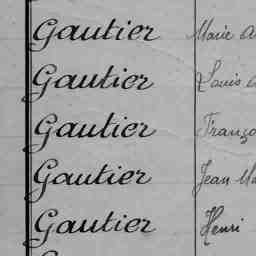 Gautier Marie
Gautier Louis
Gautier
Gautier Jean
Gautier Henri